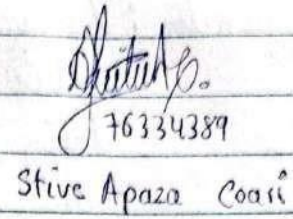 76334389
Stive Apaza Coari